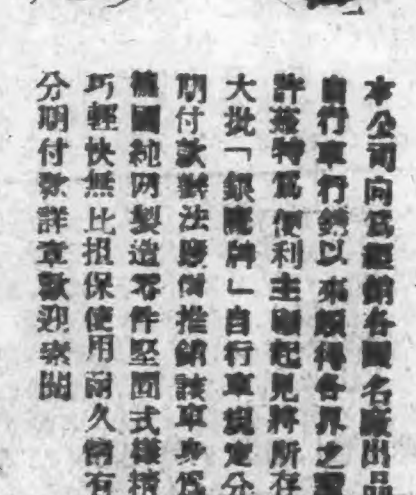 本公司向為運銷各國名廠出品
自行車行銷以來頗得各界之
許茲特為便利主顧起見將所存
大批「銀鷹牌」自行車規定分
期付款辦法廉價推銷該車身為
德國純鋼製造零件堅固式樣精
巧輕快無比担保使用耐久備有
分期付款詳章歡迎來閱